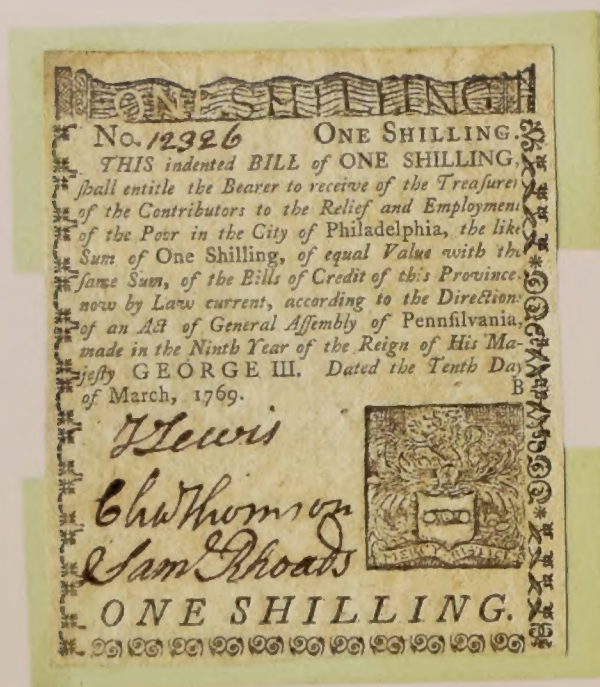 ONE SHILLING
No. 12326 ONE SHILLING.
THIS indented BILL of ONE SHILLING,
ſhall entitle the Bearer to receive of the Treaſurer
of the Contributors to the Relief and Employment
of the Poor in the City of Philadelphia, the like
Sum of One Shilling, of equal Value with the
ſame Sum, of the Bills of Credit of this Province
now by Law current, according to the Directions
of an Act of General Aſſembly of Pennſilvania,
made in the Ninth Year of the Reign of His Ma-
jeſty GEORGE III. Dated the Tenth Day
of March, 1769. B
J Lewis
Cha Thomson
Saml Rhoads
MERCY JUSTICE
ONE SHILLING.